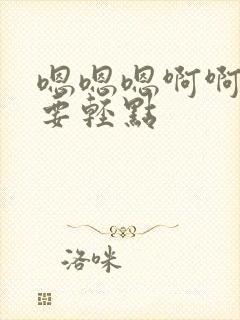 嗯嗯嗯啊啊
要轻點
洛咪